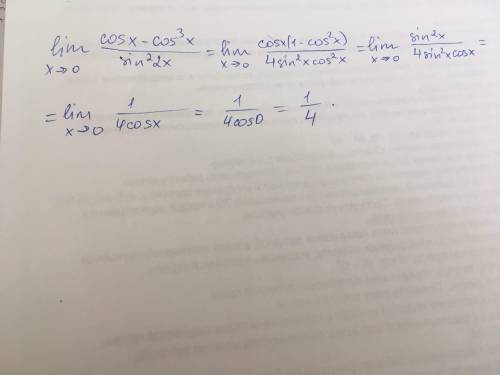 lim x→0 (cosx − cos³x)/(sin²2x) = lim x→0 (cosx(1−cos²x))/(4sin²xcos²x) = lim x→0 (sin²x)/(4sin²xcosx) =
= lim x→0 1/(4cosx) = 1/(4cos0) = 1/4 .